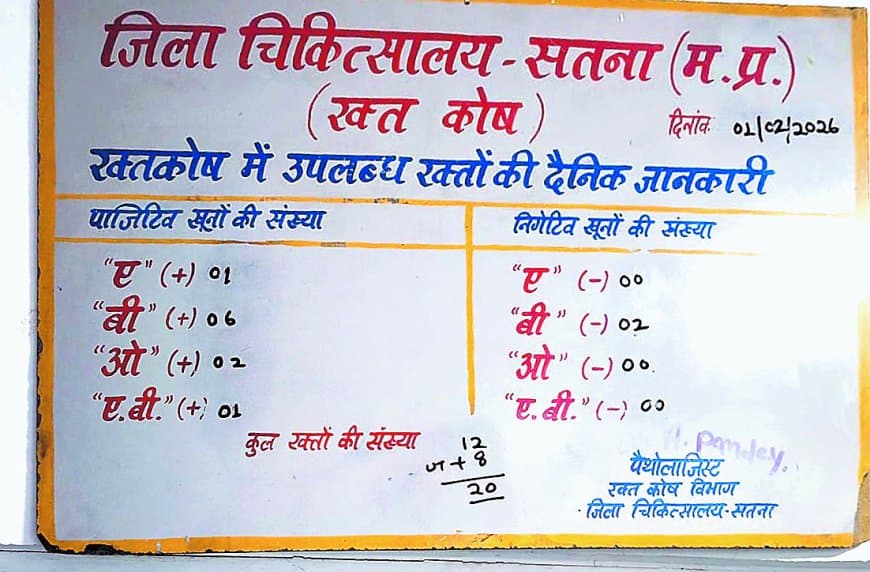 जिला चिकित्सालय - सतना (म.प्र.)
(रक्त कोष)
दिनांक 01/02/2026
रक्तकोष में उपलब्ध रक्तों की दैनिक जानकारी
पाजिटिव खूनों की संख्या
"ए" (+) 01
"बी" (+) 06
"ओ" (+) 02
"ए.बी." (+) 01
निगेटिव खूनों की संख्या
"ए" (-) 00
"बी" (-) 02
"ओ" (-) 00
"ए.बी." (-) 00
कुल रक्तों की संख्या
12
+ 8
20
Pandey
पैथोलाजिस्ट
रक्त कोष विभाग
जिला चिकित्सालय-सतना